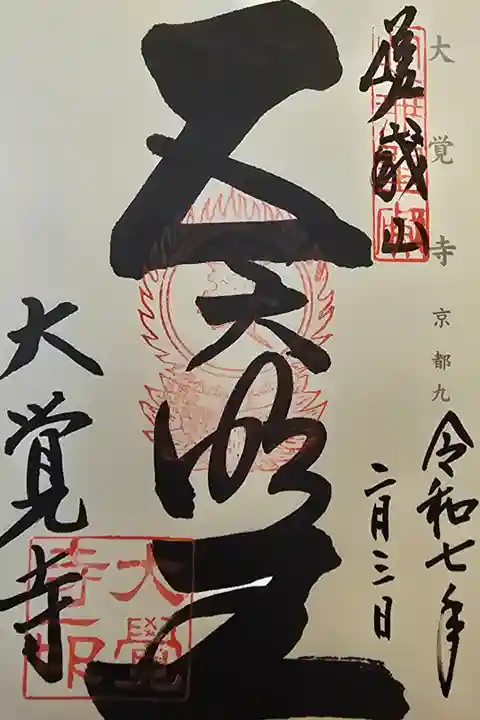 大覚寺 京都九
嵯峨山
令和七年
二月三日
五大明王
大覚寺
大覺寺印